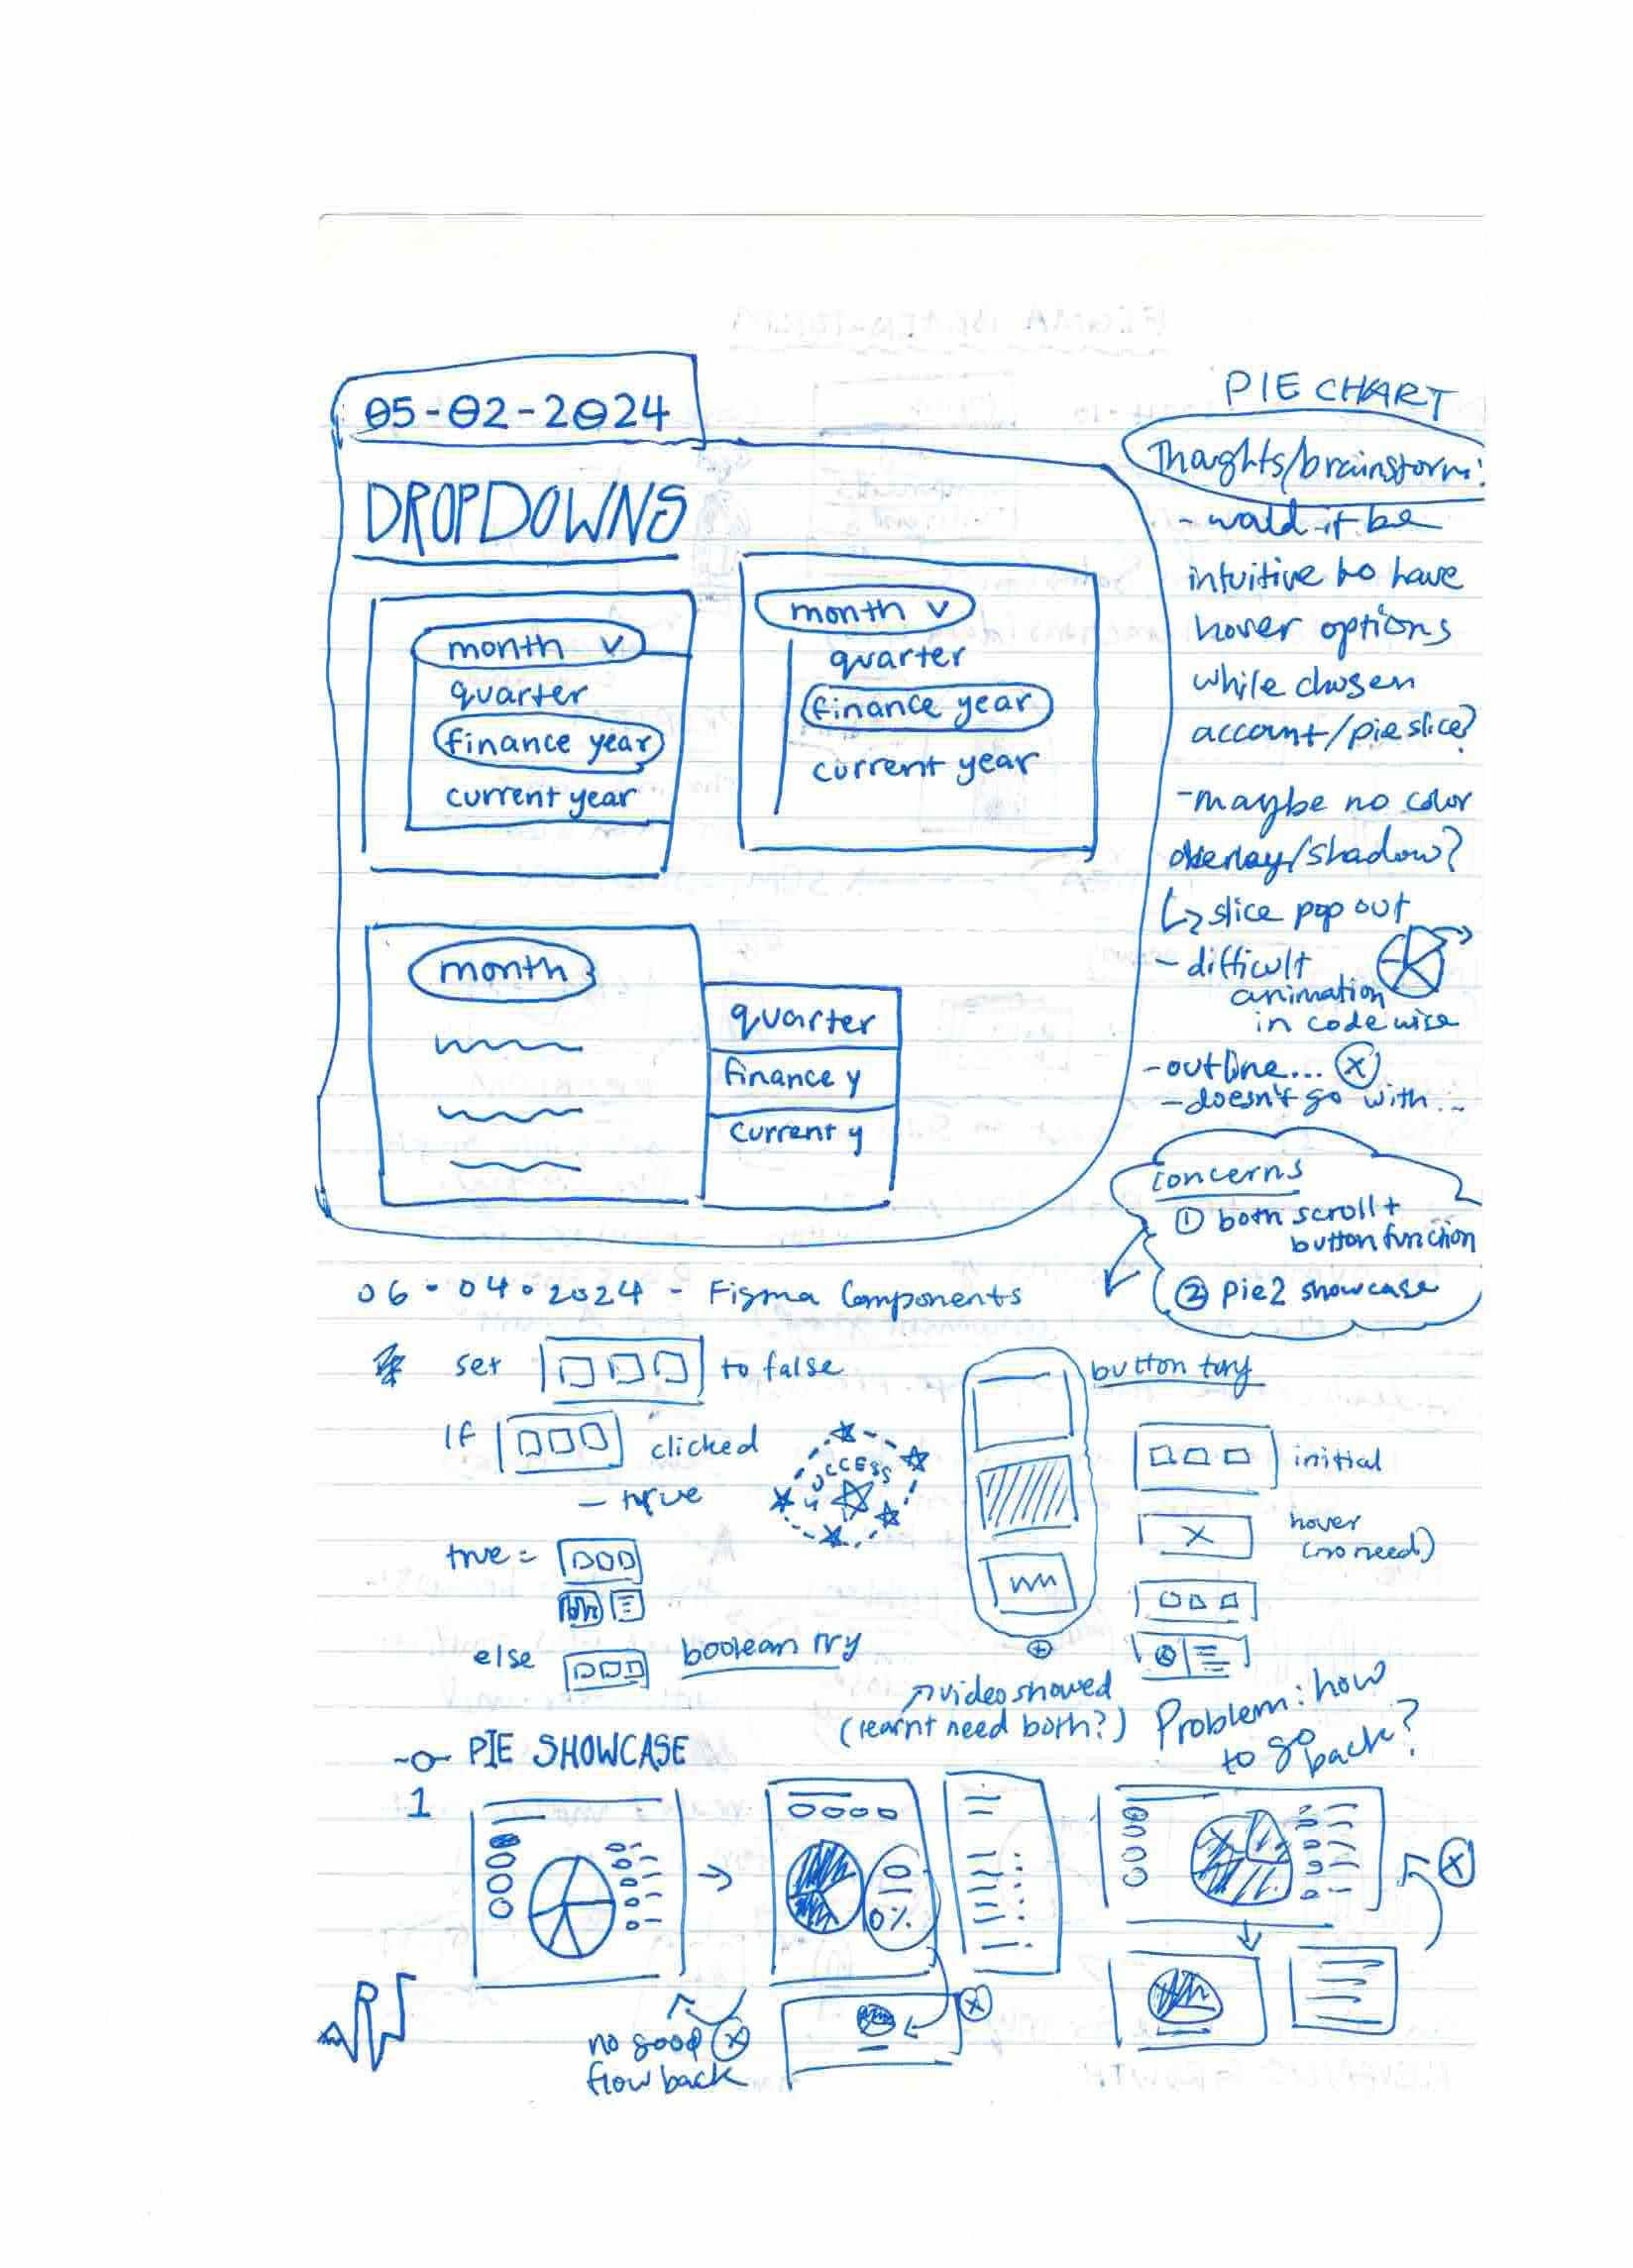 05-02-2024
DROPDOWNS
month v
quarter
finance year
current year
month v
quarter
finance year
current year
month
quarter
finance y
current y
PIE CHART
Thoughts/brainstorm:
- would it be
intuitive to have
hover options
while chosen
account/pie slice?
- maybe no color
overlay/shadow?
↳ slice pop out
- difficult
animation
in code wise
- outline... X
- doesn't go with...
concerns
① both scroll +
button function
② pie2 showcase
06-04-2024 - Figma Components
set to false
If clicked
- true
true =
else
boolean try
button try
initial
hover
(no need)
↗ video showed
(learnt need both?)
Problem: how
to go
back?
-o- PIE SHOWCASE
1
0
0%
X
X
no good X
flow back